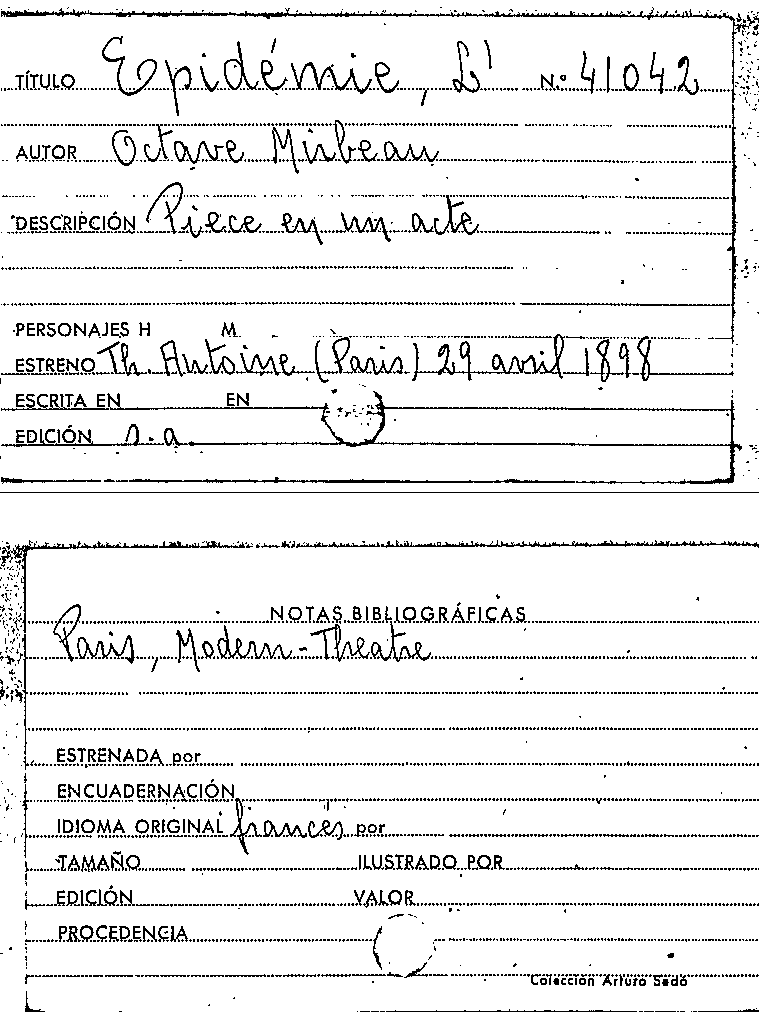 TÍTULO Epidémie, L' N.º 41042
AUTOR Octave Mirbeau
DESCRIPCIÓN Piece en un acte
PERSONAJES H M.
ESTRENO Th. Antoine (Paris) 29 avril 1898
ESCRITA EN EN
EDICIÓN s.a.
NOTAS BIBLIOGRÁFICAS
Paris, Modern-Theatre
ESTRENADA por
ENCUADERNACIÓN
IDIOMA ORIGINAL francés por
TAMAÑO ILUSTRADO POR
EDICIÓN VALOR
PROCEDENCIA
Colección Arturo Sedó